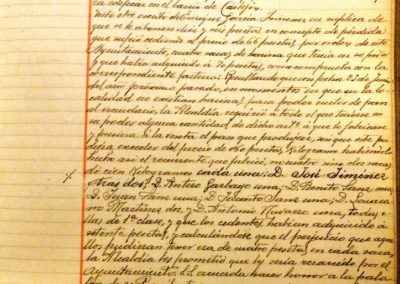 ra edificar en el barrio de Castejón
Visto otro escrito de Enrique García Jimenez en suplica de
que se le abonen diez y seis pesetas en concepto de perdida
que sufrió vendiendo al precio de 65 pesetas por orden de este
Ayuntamiento, cuatro sacas de harina que tenia en su po-
y que habia adquirido á 70 pesetas, como comprueba con la
correspondiente factura: Resultando que con fecha 23 de Junio
del año próximo pasado, en momentos en que en la lo-
calidad no existian harinas para poder surtir de pan
al vecindario, la Alcaldia requirió a todo el que tuviese en
su poder alguna cantidad de dicho artº á que lo fabricase
y pusiera á la venta el pan que produjese, sin que este pu-
diera exceder del precio de 0'60 pesetas Kilogramo habiendolo
hecho asi el recurrente que fabricó, cuatro sacas
de cien Kilogramos cada una; D. José Jiménez
Aras dos; D. Antero Garbayo una; D. Benito Sanz una;
D. Juan Sanz una; D. Jacinto Sanz una; D. Laurea-
no Martinez dos y D. Antonio Navarro una, todas e-
llas de 1ª clase, y que cedentes habian adquirido á
setenta pesetas, y calculándose que el perjuicio que aque-
llos pudieran tener era de cuatro pesetas en cada saca,
la Alcaldia les prometió que les seria resarcido por el
Ayuntamiento. Se acuerda hacer honor a la pala-